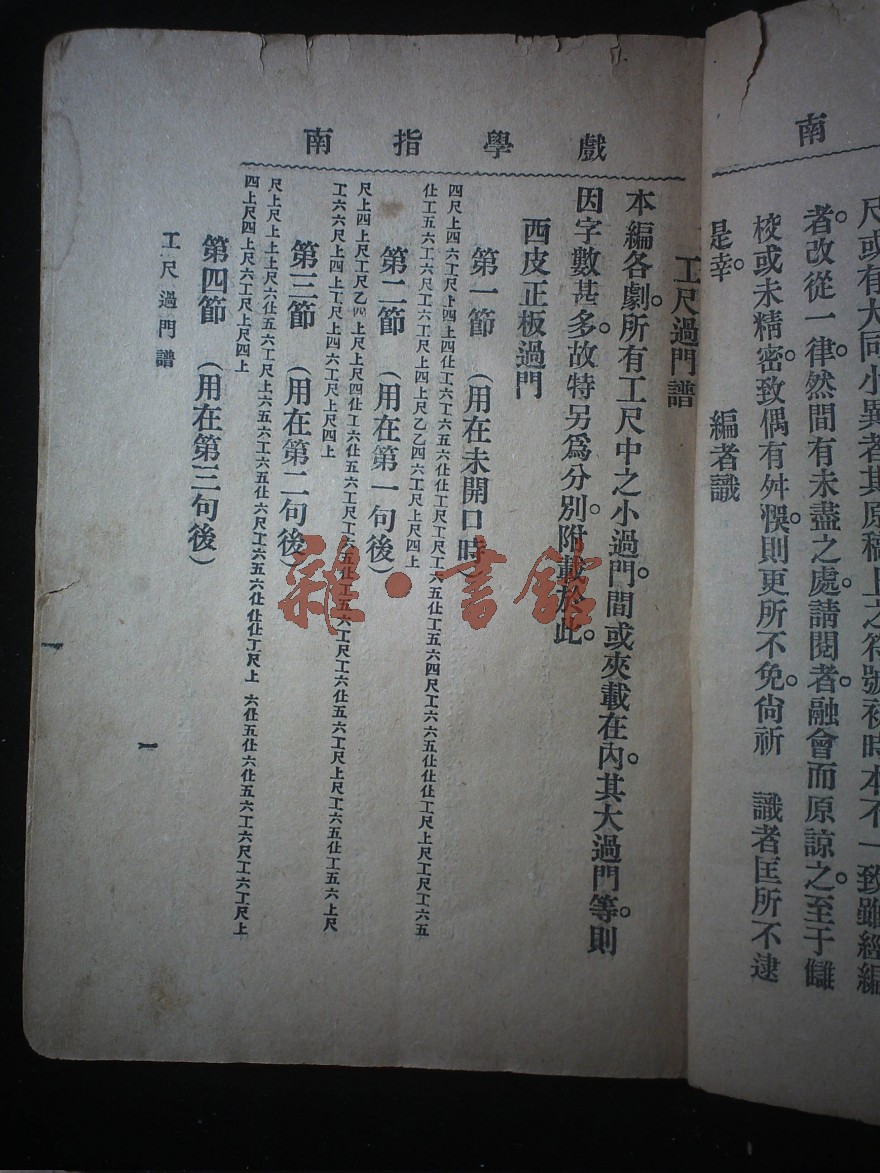 南
尺或有大同小異者其原稿上之符號初時本不一致雖經編
者改從一律。然間有未盡之處。請閱者融會而原諒之。至于讎
校或未精密。致偶有舛誤。則更所不免。尙祈　識者匡所不逮
是幸。　編者識
戲學指南
工尺過門譜
本編各劇。所有工尺中之小過門。間或夾載在內。其大過門等。則
因字數甚多。故特另爲分別。附載於此。
西皮正板過門
第一節　(用在未開口時)
四尺上四六工尺上四上四仕工六工六五工六仕工尺工尺工六五仕工五六四尺工六六五仕仕仕工尺上上尺工尺工六五
仕工五六工六尺工六工尺上四上尺乙乙四六工尺上尺四上
第二節　(用在第一句後)
尺上四上尺工尺乙四上尺上上尺四仕工六仕五六工尺工六五仕工五六工尺工六仕五六工尺上尺工六五仕工五六上尺
工六六尺上四上工尺上四六工尺上尺四上
第三節　(用在第二句後)
尺上尺上上士尺六仕五六工尺上六五六工六五仕六尺工六五六仕仕仕工尺上　六仕五仕六仕五六工六尺工六工尺上
四上尺四上尺六工尺上尺四上
第四節　(用在第三句後)
工尺過門譜
一
雜·書館